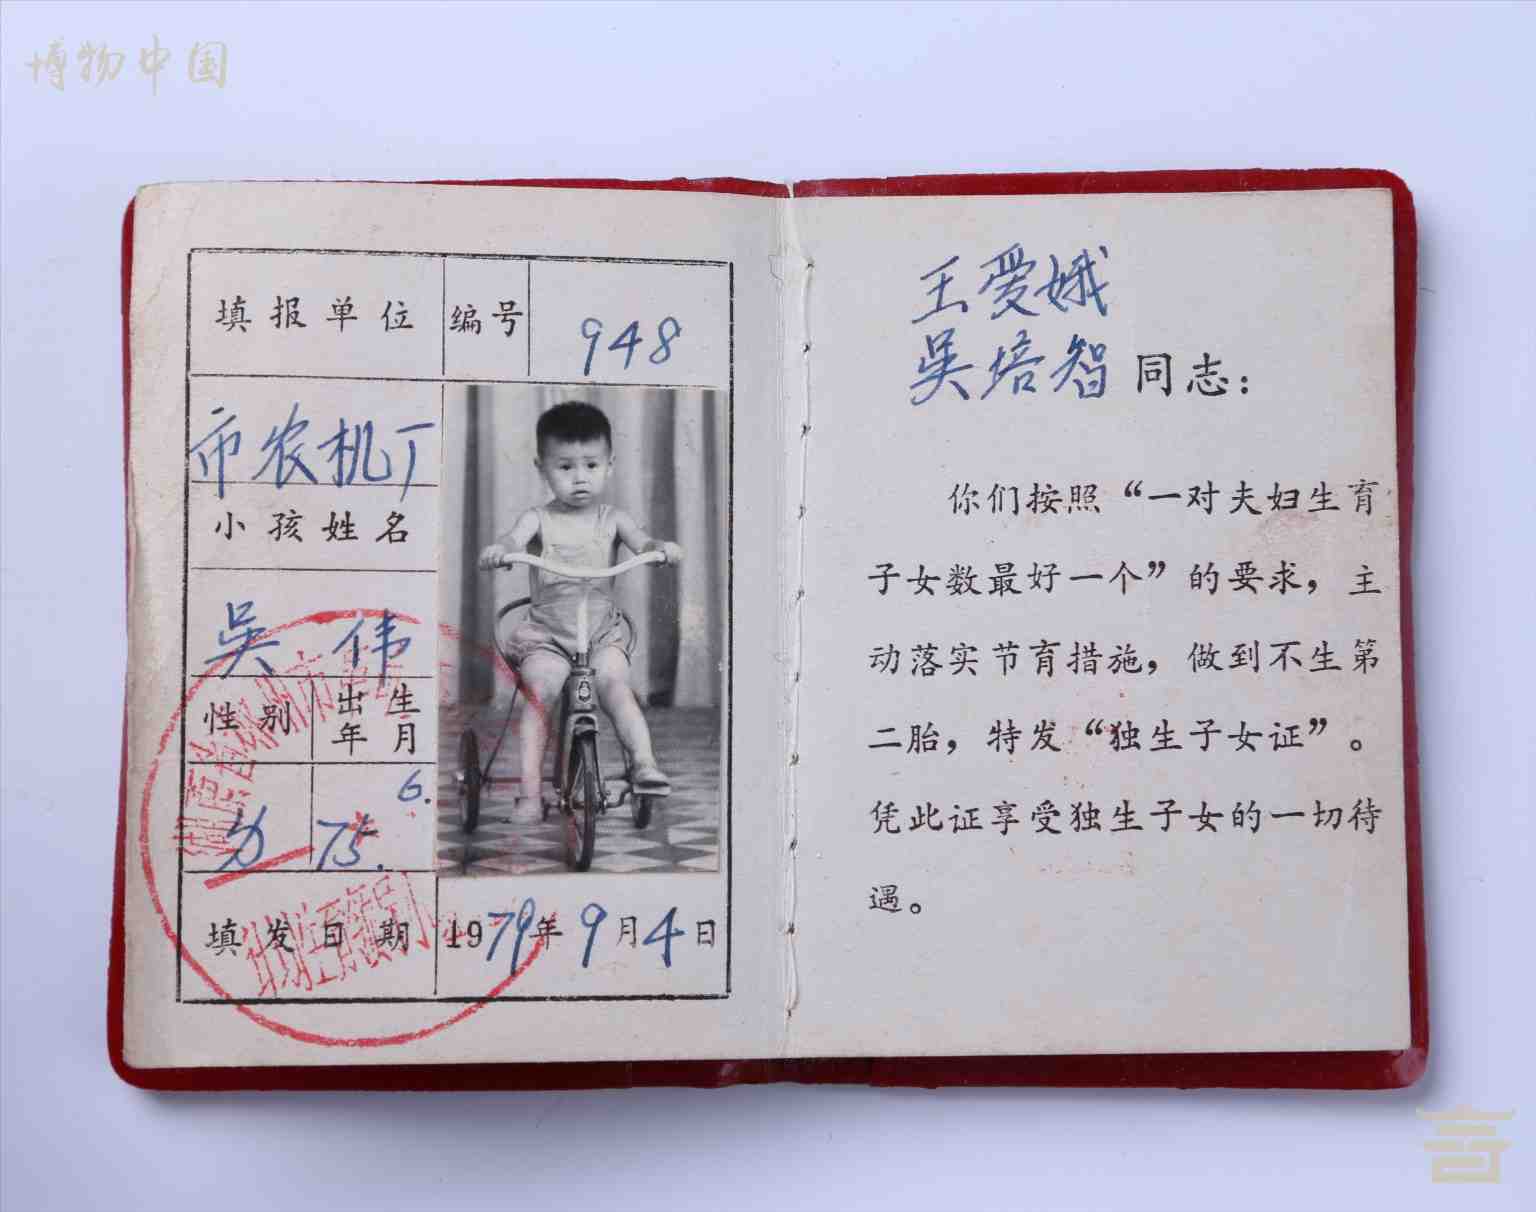 博物中国
填报单位 编号 948
市农机厂
小孩姓名
吴伟
性别 出生年月
男 75.6.
填发日期 1979年9月4日
王爱娥
吴培智同志：
你们按照“一对夫妇生育
子女数最好一个”的要求，主
动落实节育措施，做到不生第
二胎，特发“独生子女证”。
凭此证享受独生子女的一切待
遇。